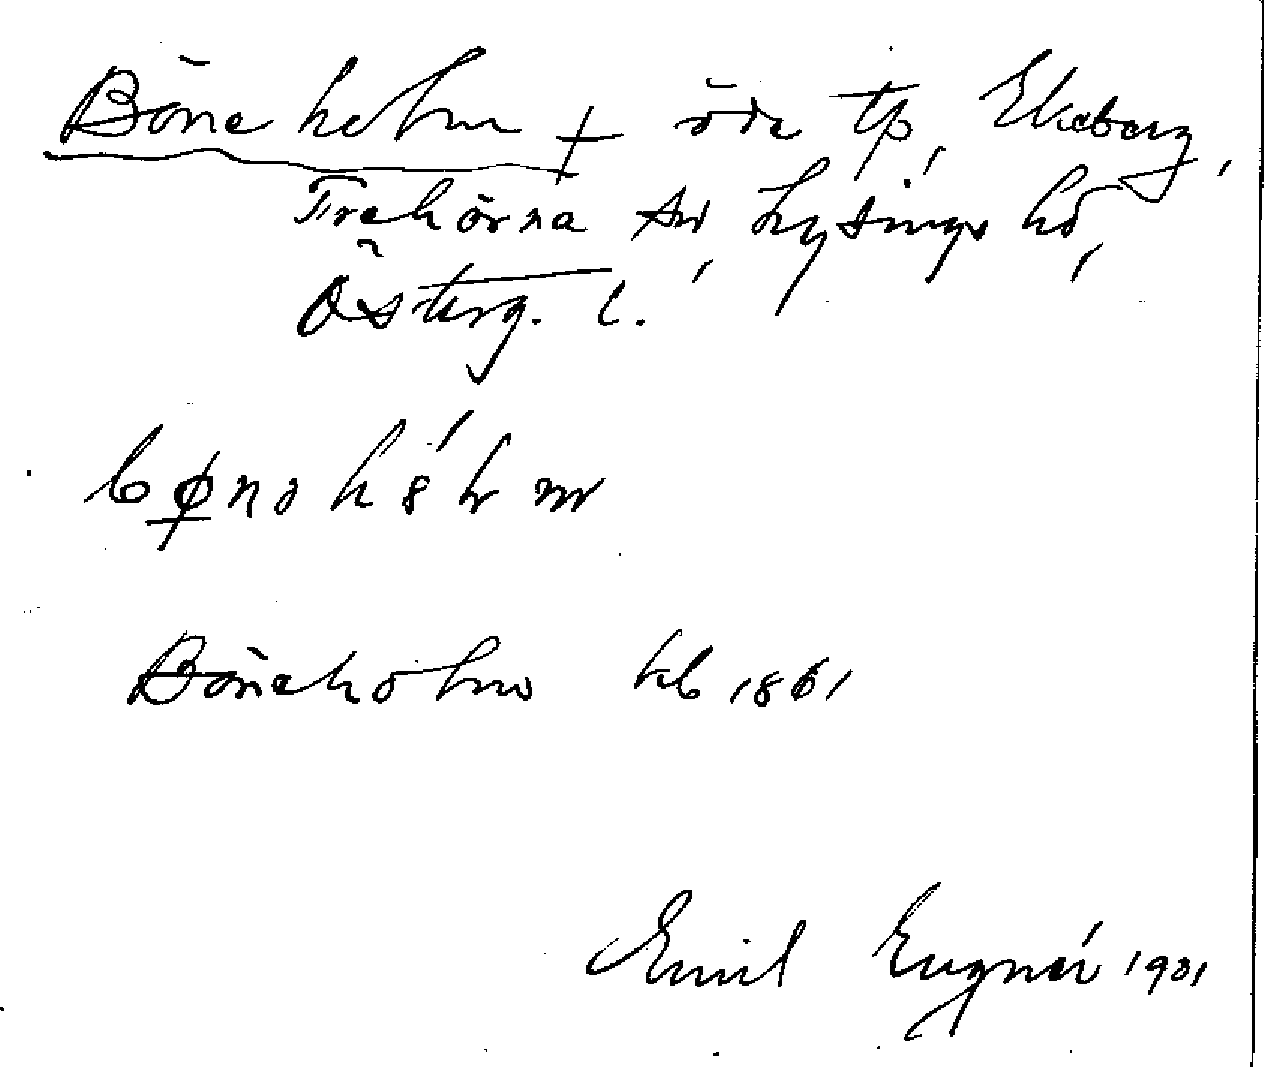 Böneholm + öde tp, Ekeberg,
Trehörna sn, Lysings hd,
Österg. l.
Böneholm kb 1861
Emil